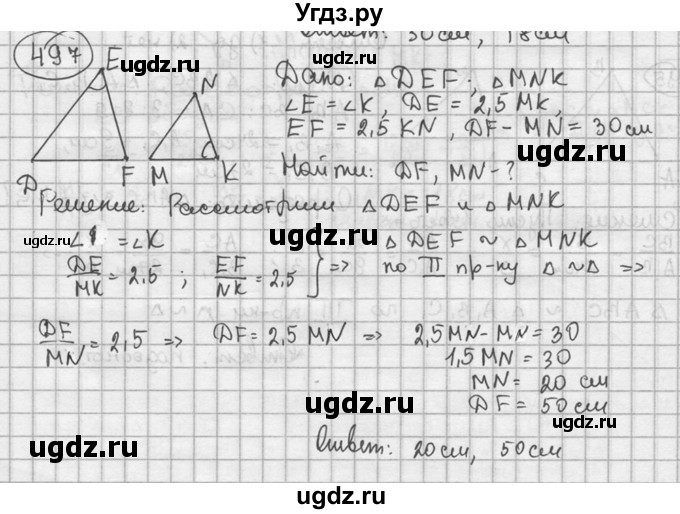 Угдз.ру
Ответ: 30 см, 18 см
497
E
N
D
F
M
K
Дано: △DEF; △MNK
∠E = ∠K, DE = 2,5 MK,
EF = 2,5 KN, DF - MN = 30 см
ugdz.ru ugdz.ru
Найти: DF, MN - ?
ugdz.ru
Решение: Рассмотрим △DEF и △MNK
ugdz.ru
∠ = ∠K
△DEF ~ △MNK
DE/MK = 2.5 ; EF/NK = 2,5 } => по II пр-ку △~△ =>
ugdz.ru ugdz.ru
DF/MN = 2,5 => DF = 2,5 MN => 2,5MN - MN = 30
1,5 MN = 30
MN = 20 см
DF = 50 см
ugdz.ru ugdz.ru
ugdz.ru
Ответ: 20 см, 50 см
ugdz.ru
ugdz.ru